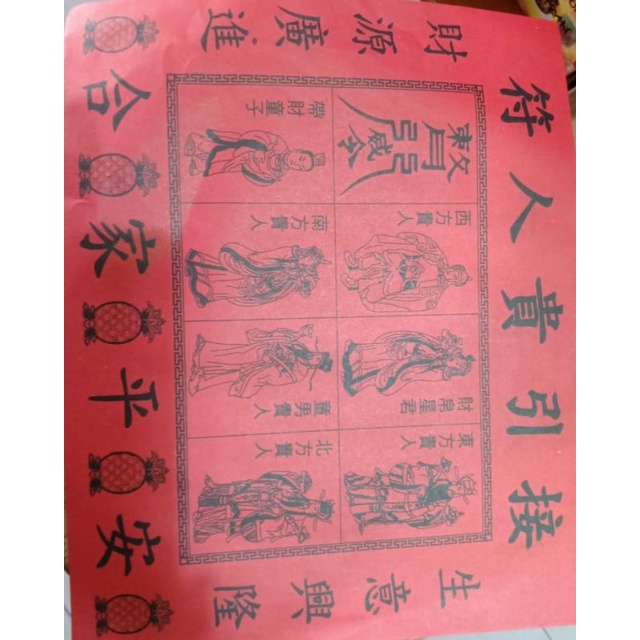 接引貴人符
生意興隆
財源廣進
東方貴人
財帛星君
西方貴人
北方貴人
童男貴人
南方貴人
帶財童子
合家平安